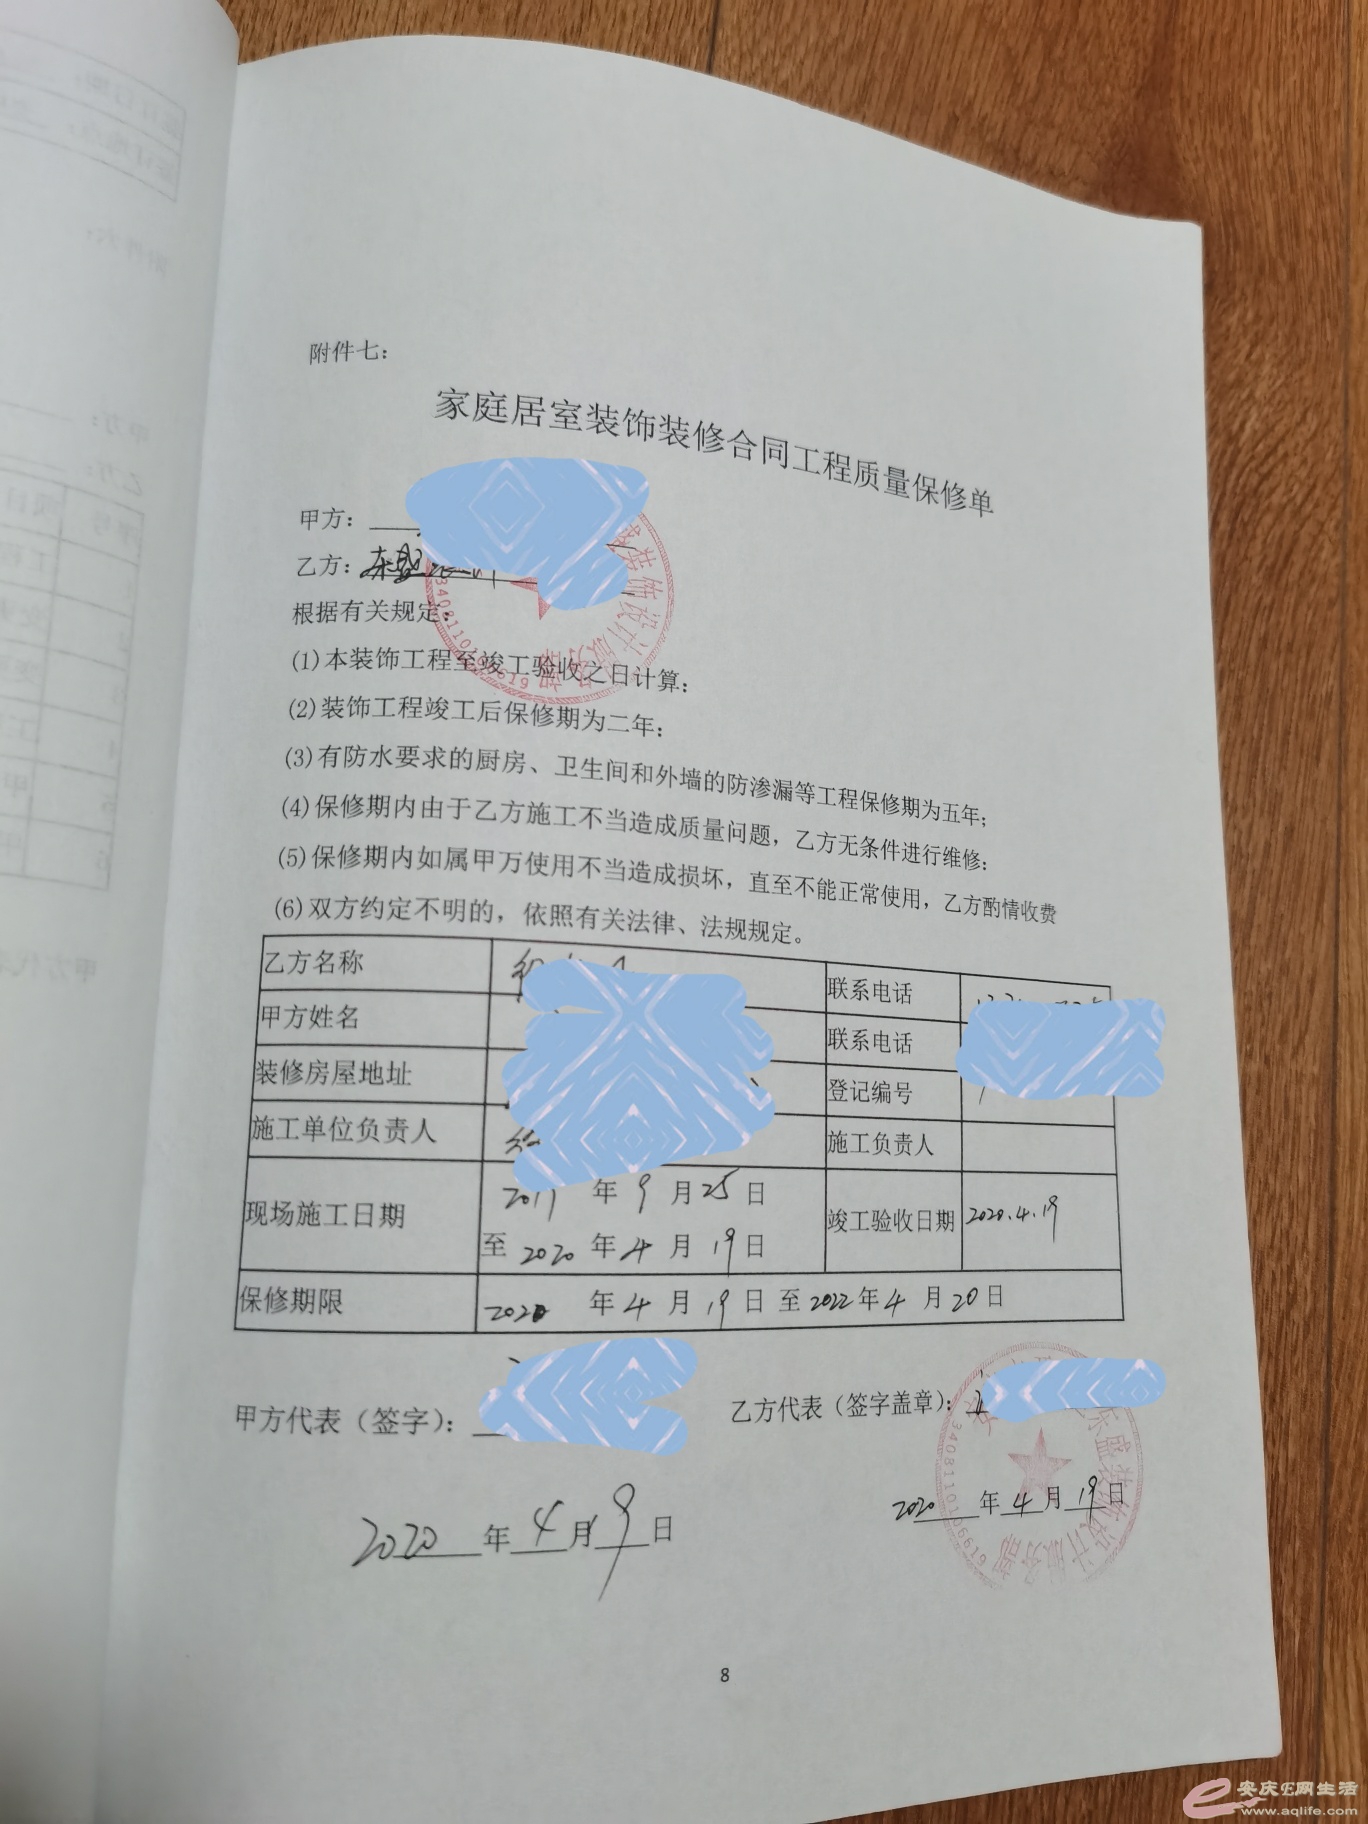 附件七：
家庭居室装饰装修合同工程质量保修单
甲方：
乙方：东盛
根据有关规定：
(1)本装饰工程至竣工验收之日计算：
(2)装饰工程竣工后保修期为二年：
(3)有防水要求的厨房、卫生间和外墙的防渗漏等工程保修期为五年；
(4)保修期内由于乙方施工不当造成质量问题，乙方无条件进行维修：
(5)保修期内如属甲万使用不当造成损坏，直至不能正常使用，乙方酌情收费
(6)双方约定不明的，依照有关法律、法规规定。
乙方名称 联系电话
甲方姓名 联系电话
装修房屋地址 登记编号
施工单位负责人 施工负责人
现场施工日期 2019 年 9 月 25 日 竣工验收日期 2020.4.19
至 2020 年 4 月 19 日
保修期限 2020 年 4 月 19 日 至 2022 年 4 月 20 日
甲方代表（签字）： 乙方代表（签字盖章）：
2020 年 4 月 19 日
2020 年 4 月 9 日
盛装饰设计服务部
3408110106619
东盛装饰设计服务部
3408110106619
8
安庆E网生活
www.aqlife.com